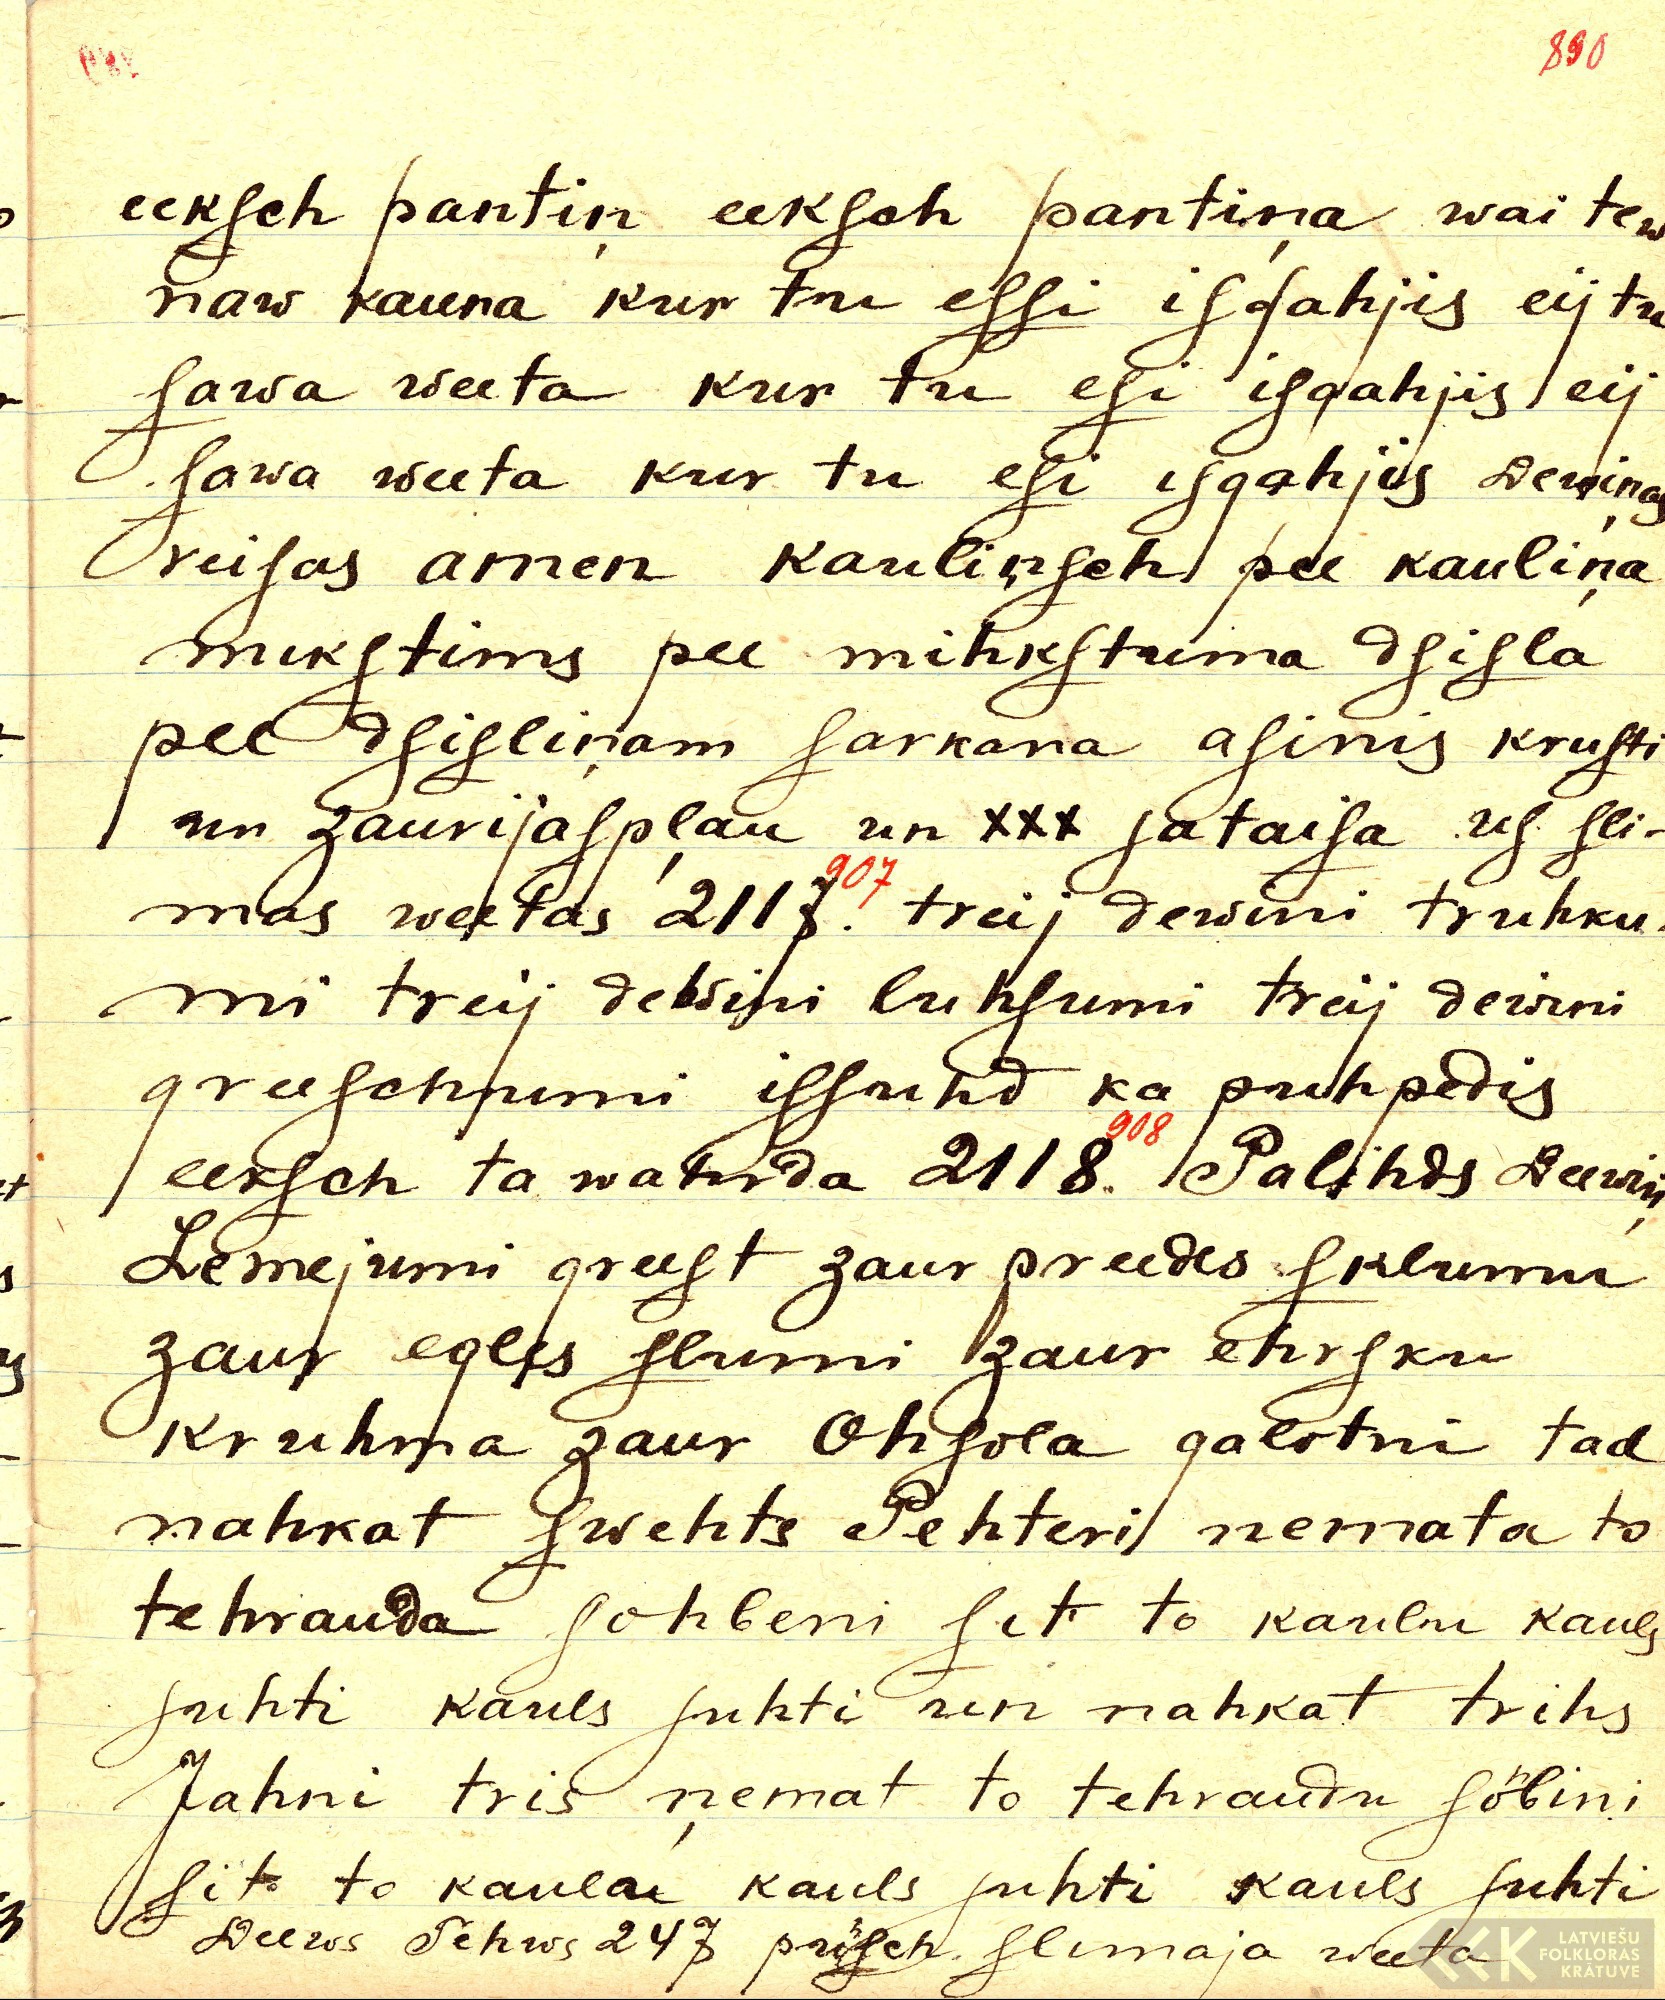 890
eeksch pantiņ eeksch pantiņa wai tew
naw kauna kur tu essi isgahjis eij tu
sawa weeta kur tu esi isgahjis eij
sawa weeta kur tu esi isgahjis Dewiņas
reisas amen kauliņsch pee kauliņa
mikstims pee mihkstuma dsisla
pee dsisliņam sarkana asinis krusti
un zaurijaspļau un xxx jataisa us sli-
mas weetas 2117. 907 treij dewini truhku-
mi treij dewini luhsumi treij dewini
greeschumi issuhd ka puhpedis
eeksch ta wahrda 2118. 908 Palihds Deewiņ
Lemejumi greest zaur preedes sklumu
zaur egles slumi zaur ehrsku
kruhma zaur Ohsola galotni tad
nahkat swehts Pehteri nemata to
tehrauda sohbeni sit to kaulu kauls
juhti kauls juhti un nahkat trihs
Jahni tris ņemat to tehraudu söbini
sit to kaulai kauls juhti kauls juhti
Deews Tehws 247 prüsch slimaja weeta
LATVIEŠU
FOLKLORAS
KRĀTUVE